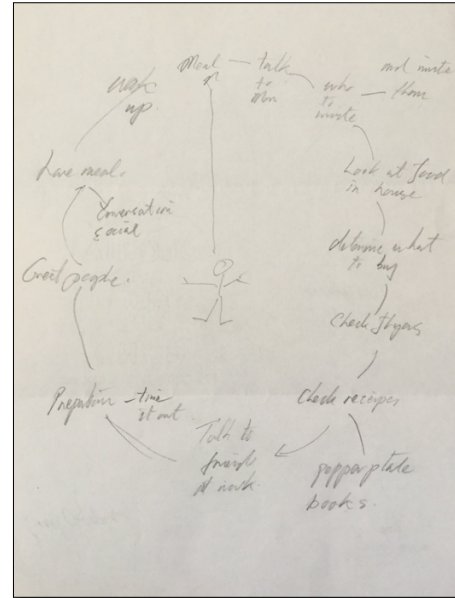 Meal
talk
to
who
to
invite
and invite
them
Look at food
in house
determine what
to buy
Check flyers
Check recipes
books.
Talk to
friends
at work.
Preparation - time
it out
Greet people.
Conversation
social
Have meal.
up.